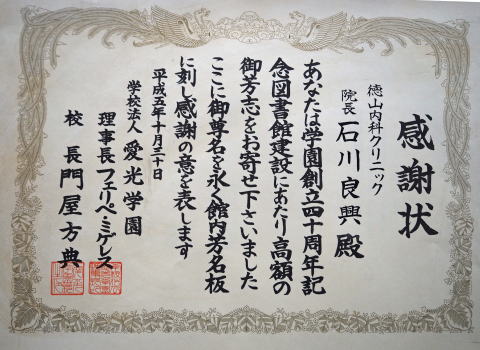 感謝状
徳山内科クリニック
院長 石川良興殿
あなたは学園創立四十周年記
念図書館建設にあたり高額の
御芳志をお寄せ下さいました
ここに御尊名を永く館内芳名板
に刻し感謝の意を表します
平成五年十月三十日
学校法人 愛光学園
理事長 フェリペ・ミゲレス
校長 門屋方典